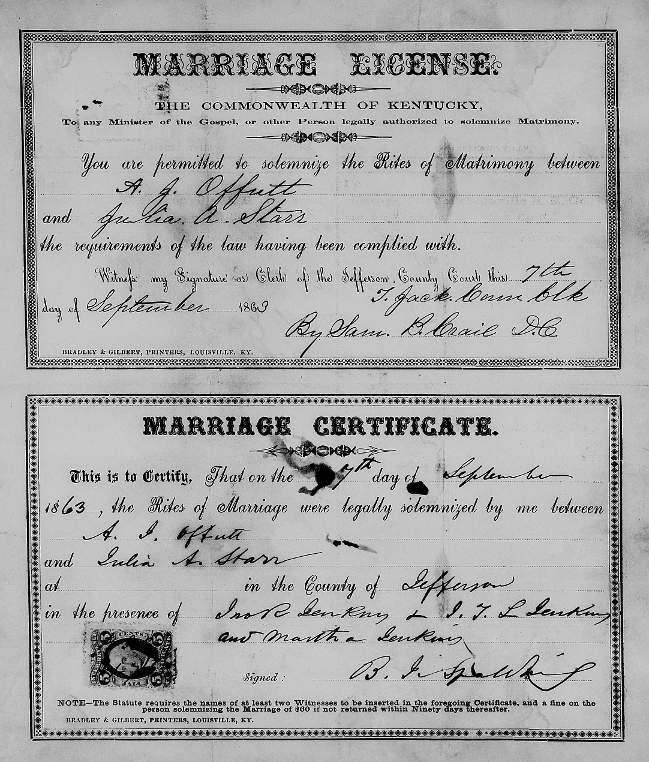 MARRIAGE LICENSE.
THE COMMONWEALTH OF KENTUCKY,
To any Minister of the Gospel, or other Person legally authorized to solemnize Matrimony.
You are permitted to solemnize the Rites of Matrimony between
A. J. Offutt
and Julia A. Starr
the requirements of the law having been complied with.
Witness my Signature as Clerk of the Jefferson County Court this 7th
day of September 1863
T. Jack. Conn Clk
By Sam. B. Crail D.C
BRADLEY & GILBERT, PRINTERS, LOUISVILLE, KY.
MARRIAGE CERTIFICATE.
This is to Certify, That on the 7th day of September
1863, the Rites of Marriage were legally solemnized by me between
A. J. Offutt
and Julia A. Starr
at in the County of Jefferson
in the presence of Jno R Jenkins & J. T. L Jenkins
and Martha Jenkins
Signed: B. J. Spalding
NOTE—The Statute requires the names of at least two Witnesses to be inserted in the foregoing Certificate, and a fine on the
person solemnizing the Marriage of $60 if not returned within Ninety days thereafter.
BRADLEY & GILBERT, PRINTERS, LOUISVILLE, KY.